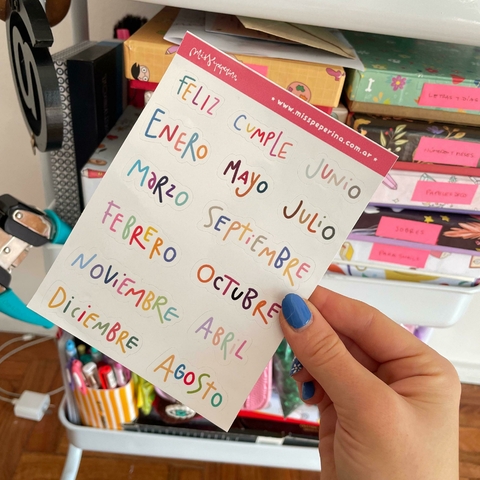 miss peperina
www.misspeperina.com.ar
FELIZ CUMPLE JUNIO
ENERO MAYO JULIO
MARZO SEPTIEMBRE
FEBRERO OCTUBRE
NOVIEMBRE ABRIL
DICIEMBRE AGOSTO